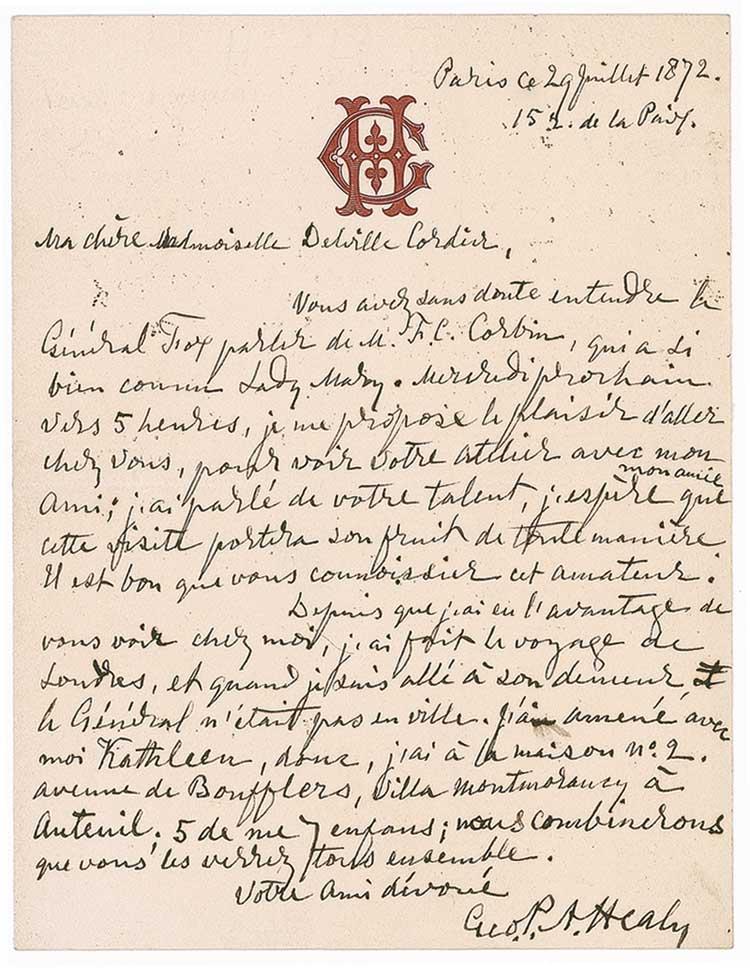 Paris ce 29 Juillet 1872.
15 r. de la Paix.
Ma chère Madmoiselle Delville Cordier,
Vous avez sans doute entendre le
Général Fox parler de M. F. C. Corbin, qui a si
bien connu Lady Mary. Mercredi prochain
vers 5 heures, je me propose le plaisir d'aller
chez vous, pour voir votre atelier avec mon
mon amie
Ami; j'ai parlé de votre talent, j'espère que
cette visite portera son fruit de toute manière
Il est bon que vous connoissier cet amateur.
Depuis que j'ai eu l'avantage de
vous voir chez moi, j'ai fait le voyage de
Londres, et quand je suis allé à son demeur
le Général n'était pas en ville. J'ai amené avec
moi Kathleen, donc, j'ai à la maison no. 2.
avenue de Boufflers, villa Montmorancy à
Auteuil. 5 de me 7 enfans; nous combinerons
que vous les verrez tous ensemble.
Votre Ami dévoué
Geo. P. A. Healy